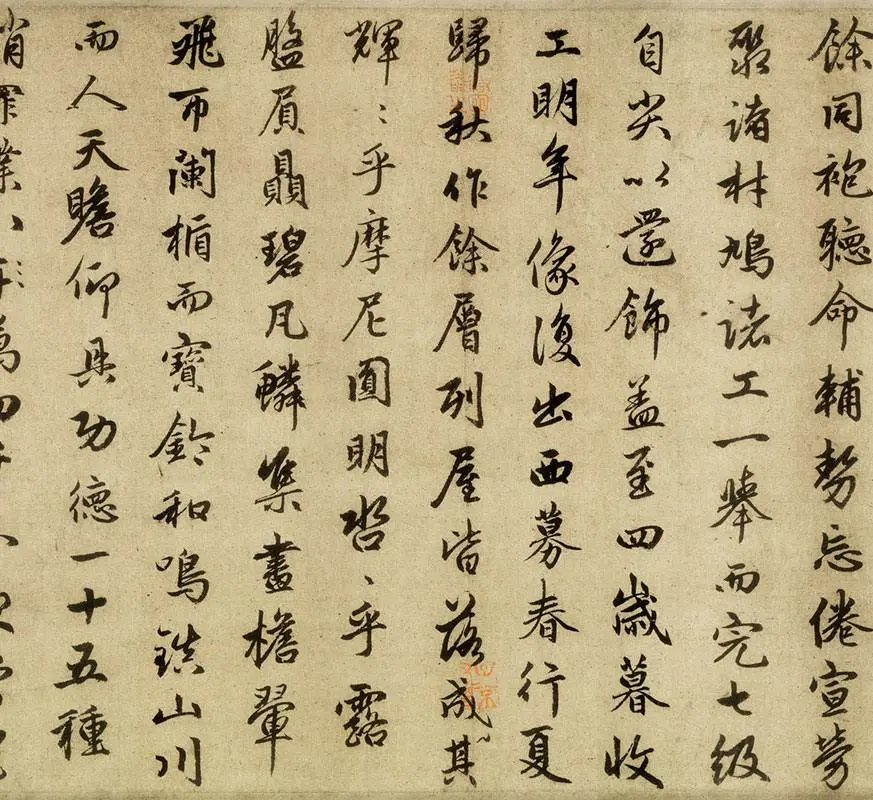 餘同袍聽命輔勢忘倦宣勞
聚諸材鳩諸工一舉而完七級
自尖以還飾蓋至四歲暮收
工明年像復出西募春行夏
歸秋作餘層列屋皆落成其
輝〻乎摩尼圓明沓〻乎露
盤屓贔碧瓦鱗集畫檐翬
飛帀闌楯而寶鈴和鳴鎮山川
而人天瞻仰具功德一十五種